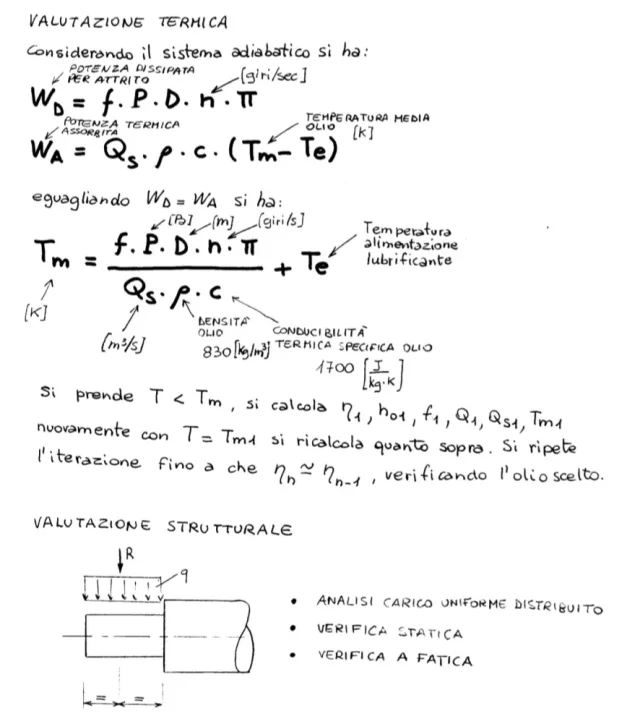 VALUTAZIONE TERMICA
Considerando il sistema adiabatico si ha:
POTENZA DISSIPATA
PER ATTRITO
[giri/sec]
W_D = f · P · D · n · π
POTENZA TERMICA
ASSORBITA
TEMPERATURA MEDIA
OLIO [K]
W_A = Q_s · ρ · c · (Tm - Te)
eguagliando W_D = W_A si ha:
[P] [m] [giri/s]
Temperatura
alimentazione
lubrificante
Tm = f. P. D. n. π / Qs. ρ. c + Te
[K]
[m³/s]
DENSITA'
OLIO
830 [kg/m³]
CONDUCIBILITÀ
TERMICA SPECIFICA OLIO
1700 [J/kg·K]
Si prende T < Tm, si calcola η1, ho1, f1, Q1, Qs1, Tm1
nuovamente con T = Tm1 si ricalcola quanto sopra. Si ripete
l'iterazione fino a che ηn ≅ ηn-1, verificando l'olio scelto.
VALUTAZIONE STRUTTURALE
R
q
• ANALISI CARICO UNIFORME DISTRIBUITO
• VERIFICA STATICA
• VERIFICA A FATICA
= =